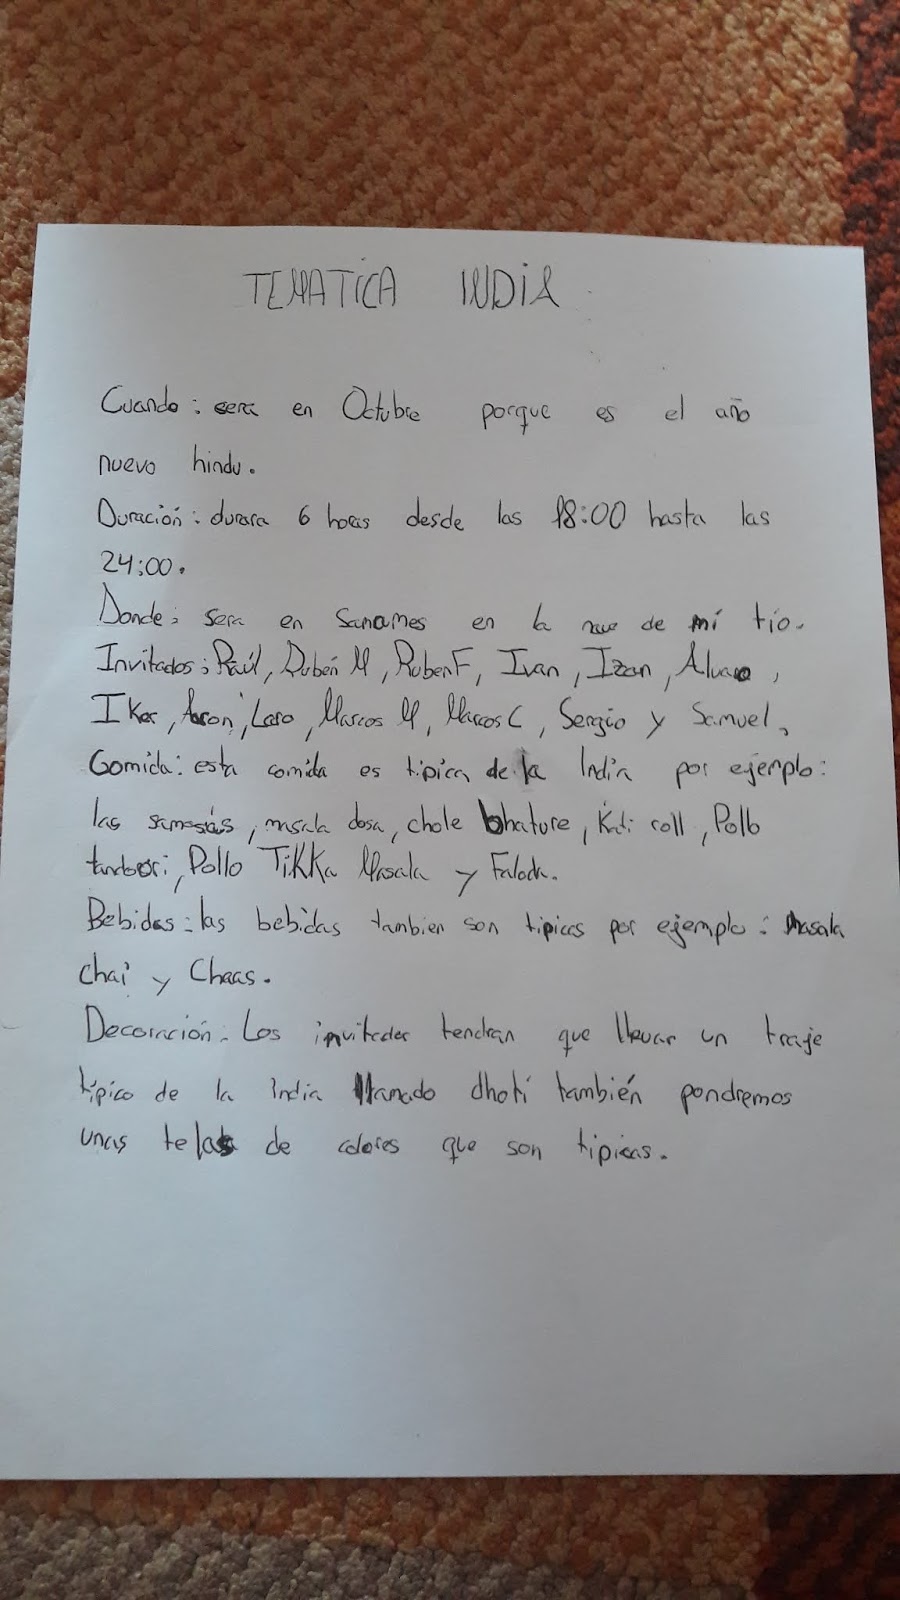 TEMATICA INDIA
Cuando: sera en Octubre porque es el año
nuevo hindu.
Duración: durara 6 horas desde las 18:00 hasta las
24:00.
Donde: sera en Sanames en la nave de mí tío.
Invitados: Raúl, Rubén M, Ruben F, Ivan, Izan, Alvaro,
Iker, Aaron, Laro, Marcos M, Marcos C, Sergio y Samuel,
Comida: esta comida es tipica de la India por ejemplo:
las samosas, masala dosa, chole bhature, Kati roll, Pollo
tandoori, Pollo TiKKa Masala y Falooda.
Bebidas: las bebidas tambien son tipicas por ejemplo: Masala
Chai y Chaas.
Decoración: Los invitados tendran que llevar un traje
típico de la India llamado dhoti también pondremos
unas telas de colores que son tipicas.